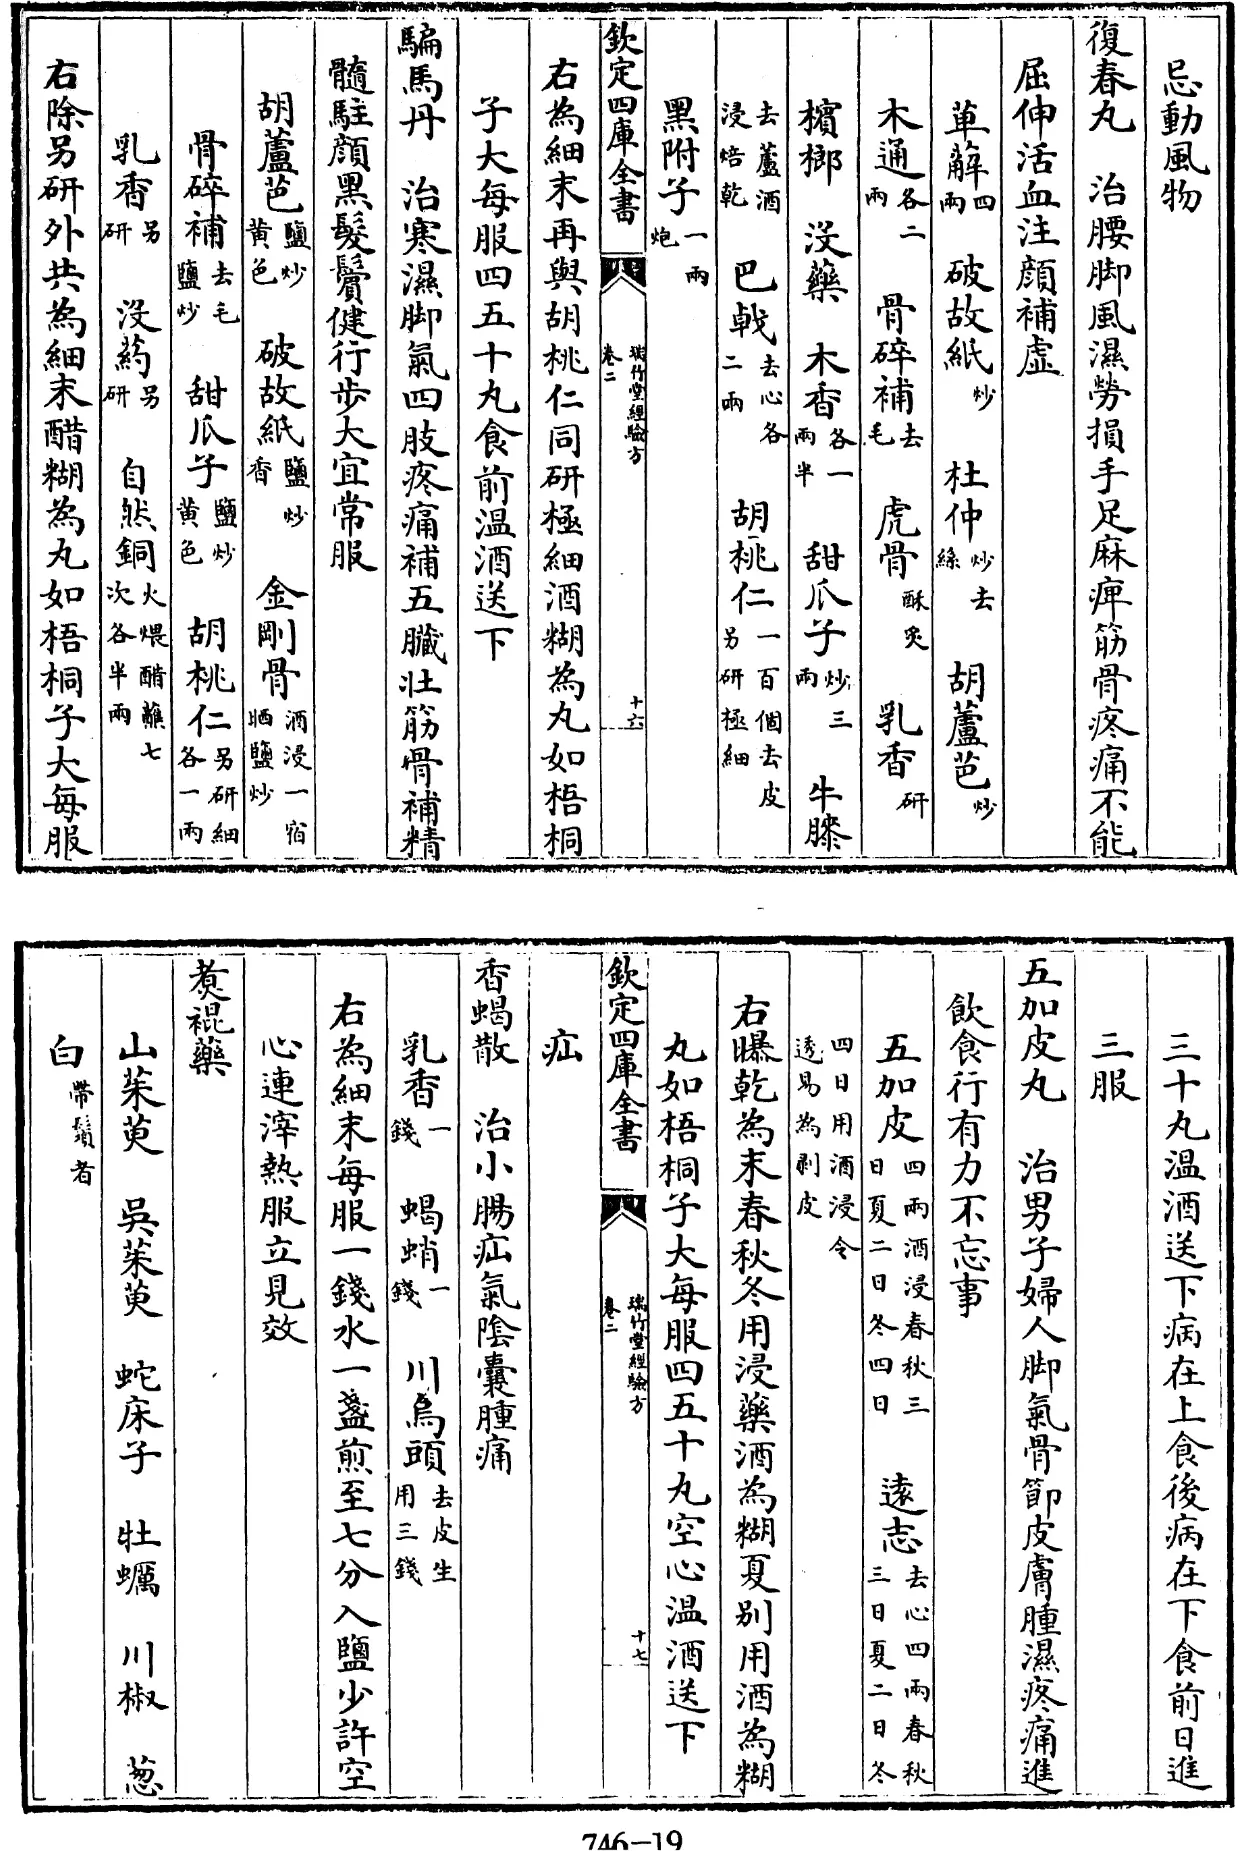 忌動風物
復春丸　治腰脚風濕勞損手足麻痺筋骨疼痛不能
屈伸活血注顔補虛
萆薢四兩　破故紙炒　杜仲炒去絲　胡蘆芭炒
木通各二兩　骨碎補去毛　虎骨酥炙　乳香研
檳榔　沒藥　木香各一兩半　甜瓜子炒三兩　牛膝
去蘆酒浸焙乾　巴戟去心各二兩　胡桃仁一百個去皮另研極細
黑附子一兩炮
欽定四庫全書　瑞竹堂經驗方　卷二　十六
右為細末再與胡桃仁同研極細酒糊為丸如梧桐
子大每服四五十丸食前温酒送下
騙馬丹　治寒濕脚氣四肢疼痛補五臟壯筋骨補精
髓駐顔黑髮鬢健行步大宜常服
胡蘆芭鹽炒黃色　破故紙鹽炒香　金剛骨酒浸一宿晒鹽炒
骨碎補去毛鹽炒　甜瓜子鹽炒黃色　胡桃仁另研細各一兩
乳香另研　沒葯另研　自然銅火煨醋蘸七次各半兩
右除另研外共為細末醋糊為丸如梧桐子大每服
三十丸温酒送下病在上食後病在下食前日進
三服
五加皮丸　治男子婦人脚氣骨節皮膚腫濕疼痛進
飲食行有力不忘事
五加皮四兩酒浸春秋三日夏二日冬四日　遠志去心四兩春秋三日夏二日冬
四日用酒浸令透易為剥皮
右曝乾為末春秋冬用浸藥酒為糊夏别用酒為糊
丸如梧桐子大每服四五十丸空心温酒送下
欽定四庫全書　瑞竹堂經驗方　卷二　十七
疝
香蝎散　治小腸疝氣陰囊腫痛
乳香一錢　蝎蛸一錢　川烏頭去皮生用三錢
右為細末每服一錢水一盞煎至七分入鹽少許空
心連滓熱服立見效
煑裩藥
山茱萸　吳茱萸　蛇床子　牡蠣　川椒　葱
白帶鬚者
746-19